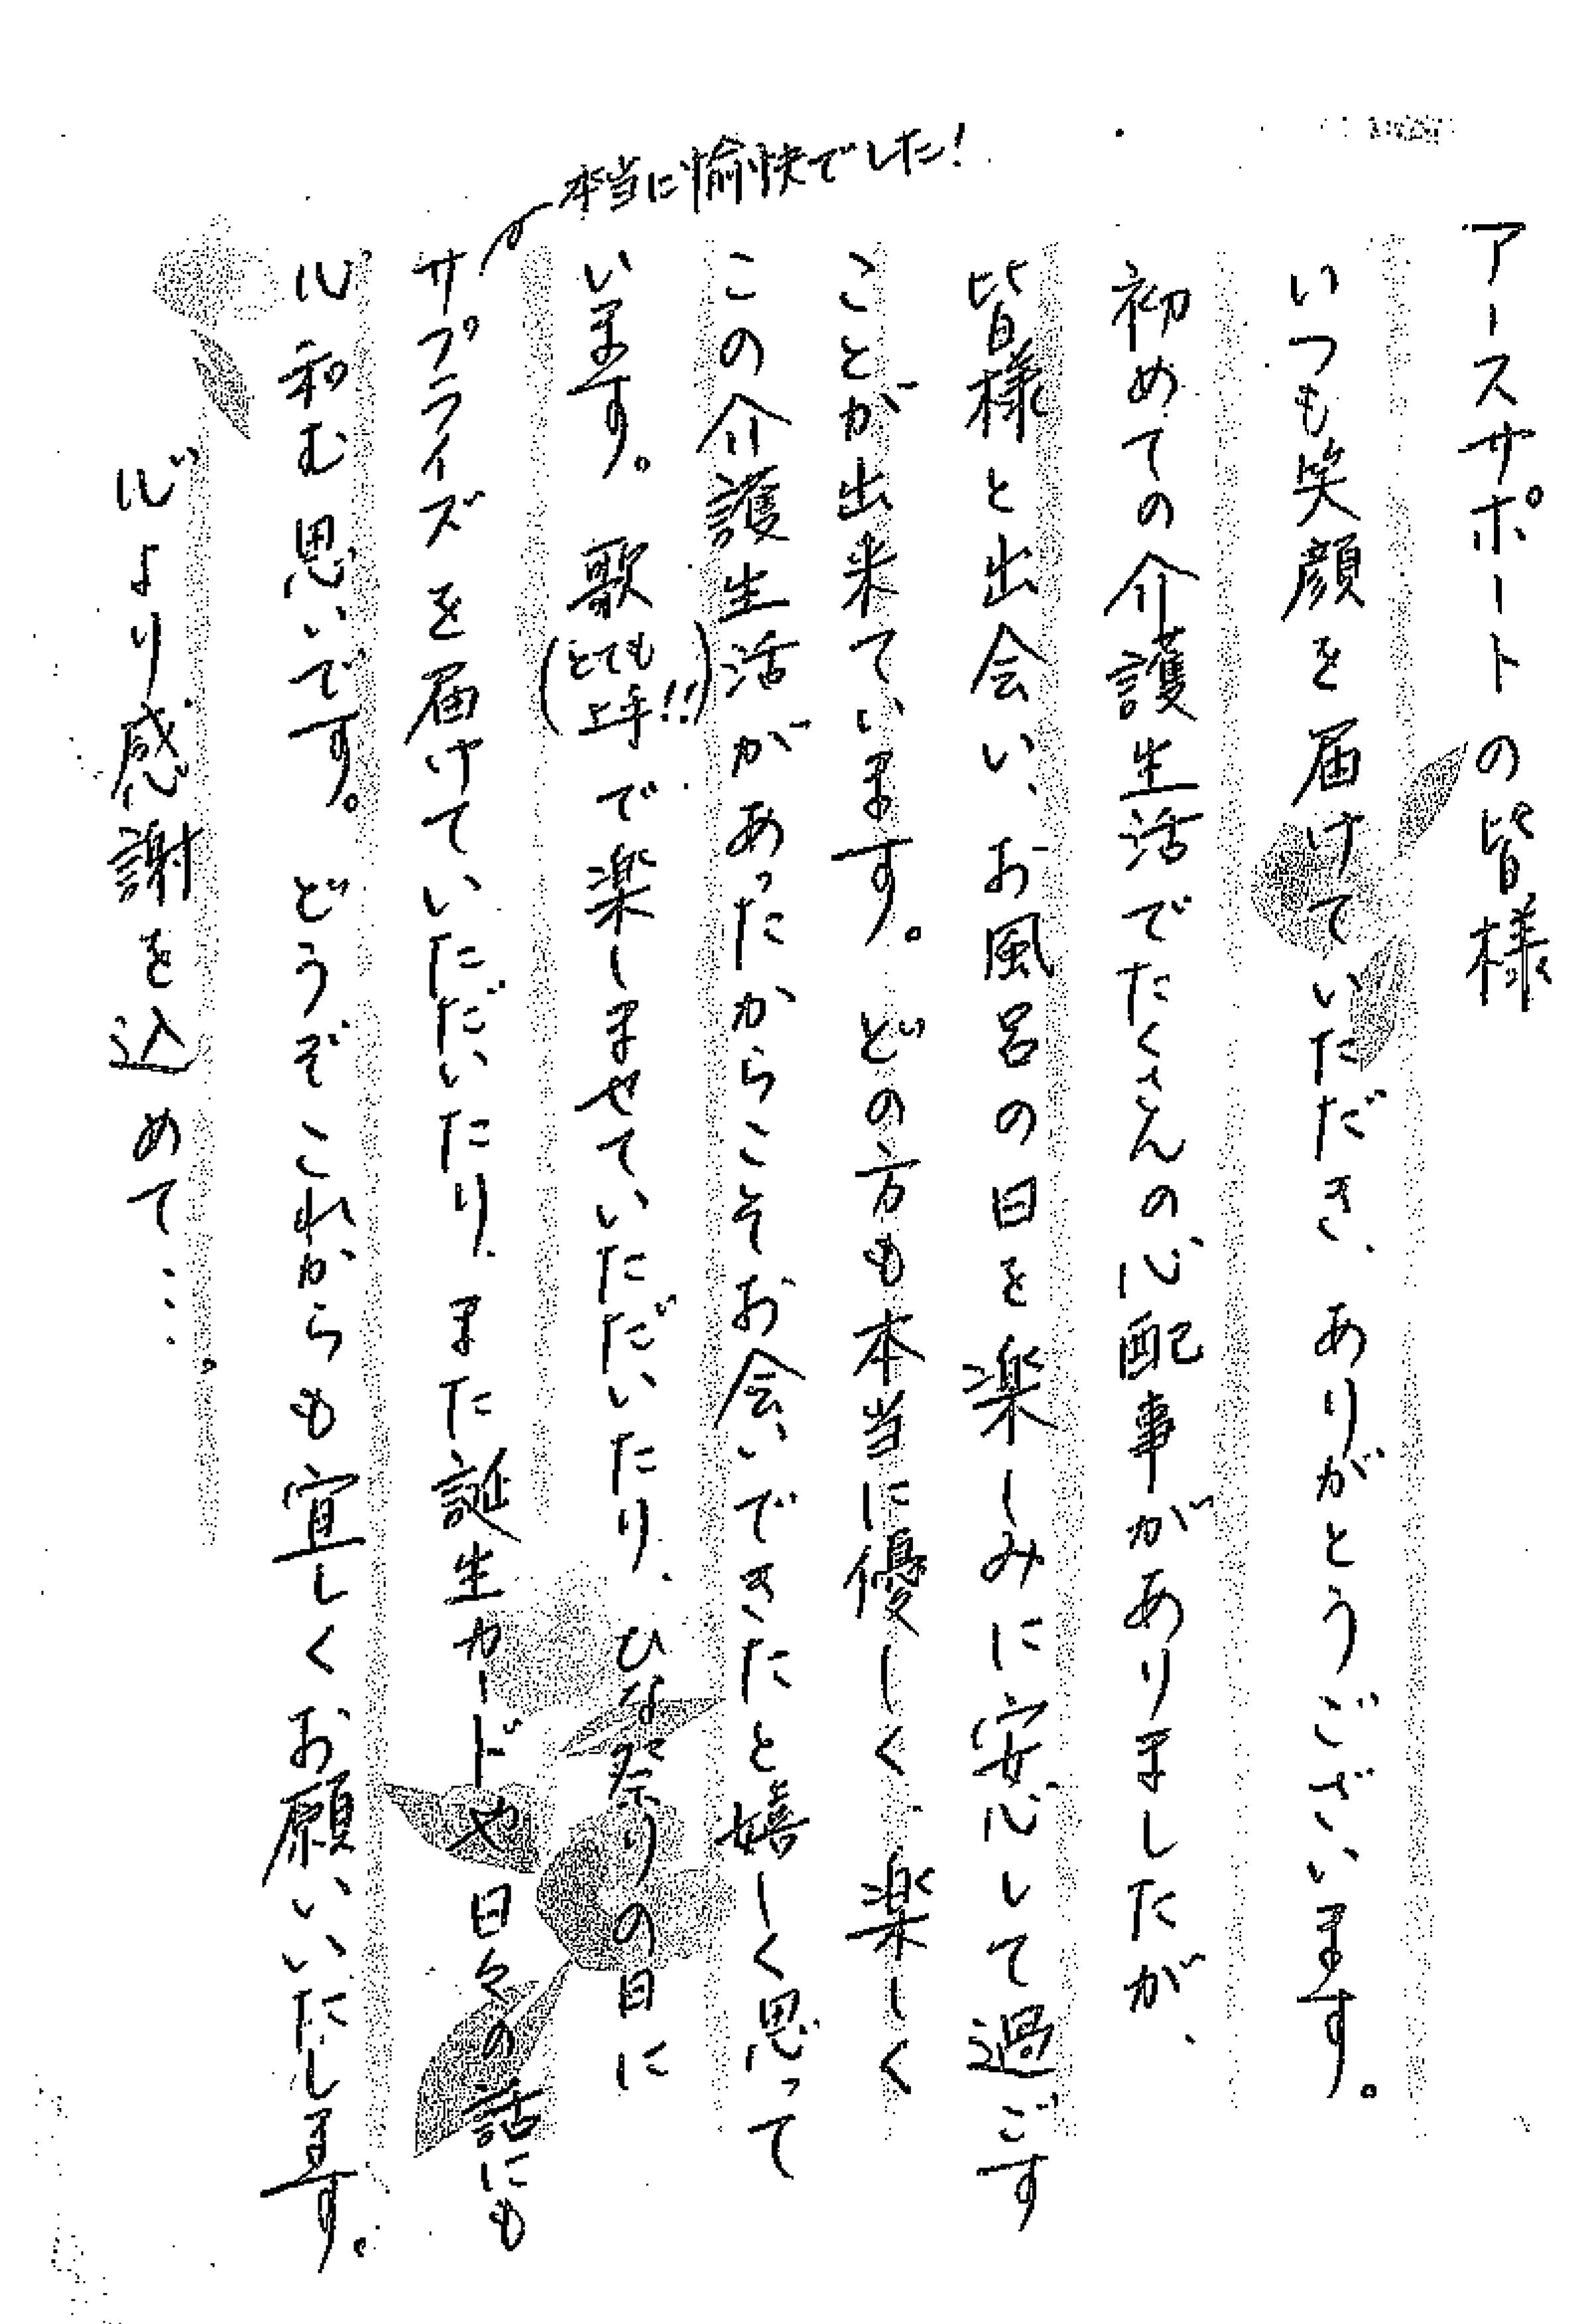 アースサポートの皆様
いつも笑顔を届けていただき、ありがとうございます。
初めての介護生活でたくさんの心配事がありましたが、
皆様と出会い、お風呂の日を楽しみに安心して過ごす
ことが出来ています。どの方も本当に優しく、楽しく
この介護生活があったからこそお会いできたと嬉しく思って
います。歌(とても上手!!)で楽しませていただいたり、ひな祭りの日に
本当に愉快でした!
サプライズを届けていただいたり、また誕生カードや日々の話にも
心和む思いです。どうぞこれからも宜しくお願いいたします。
心より感謝を込めて…。